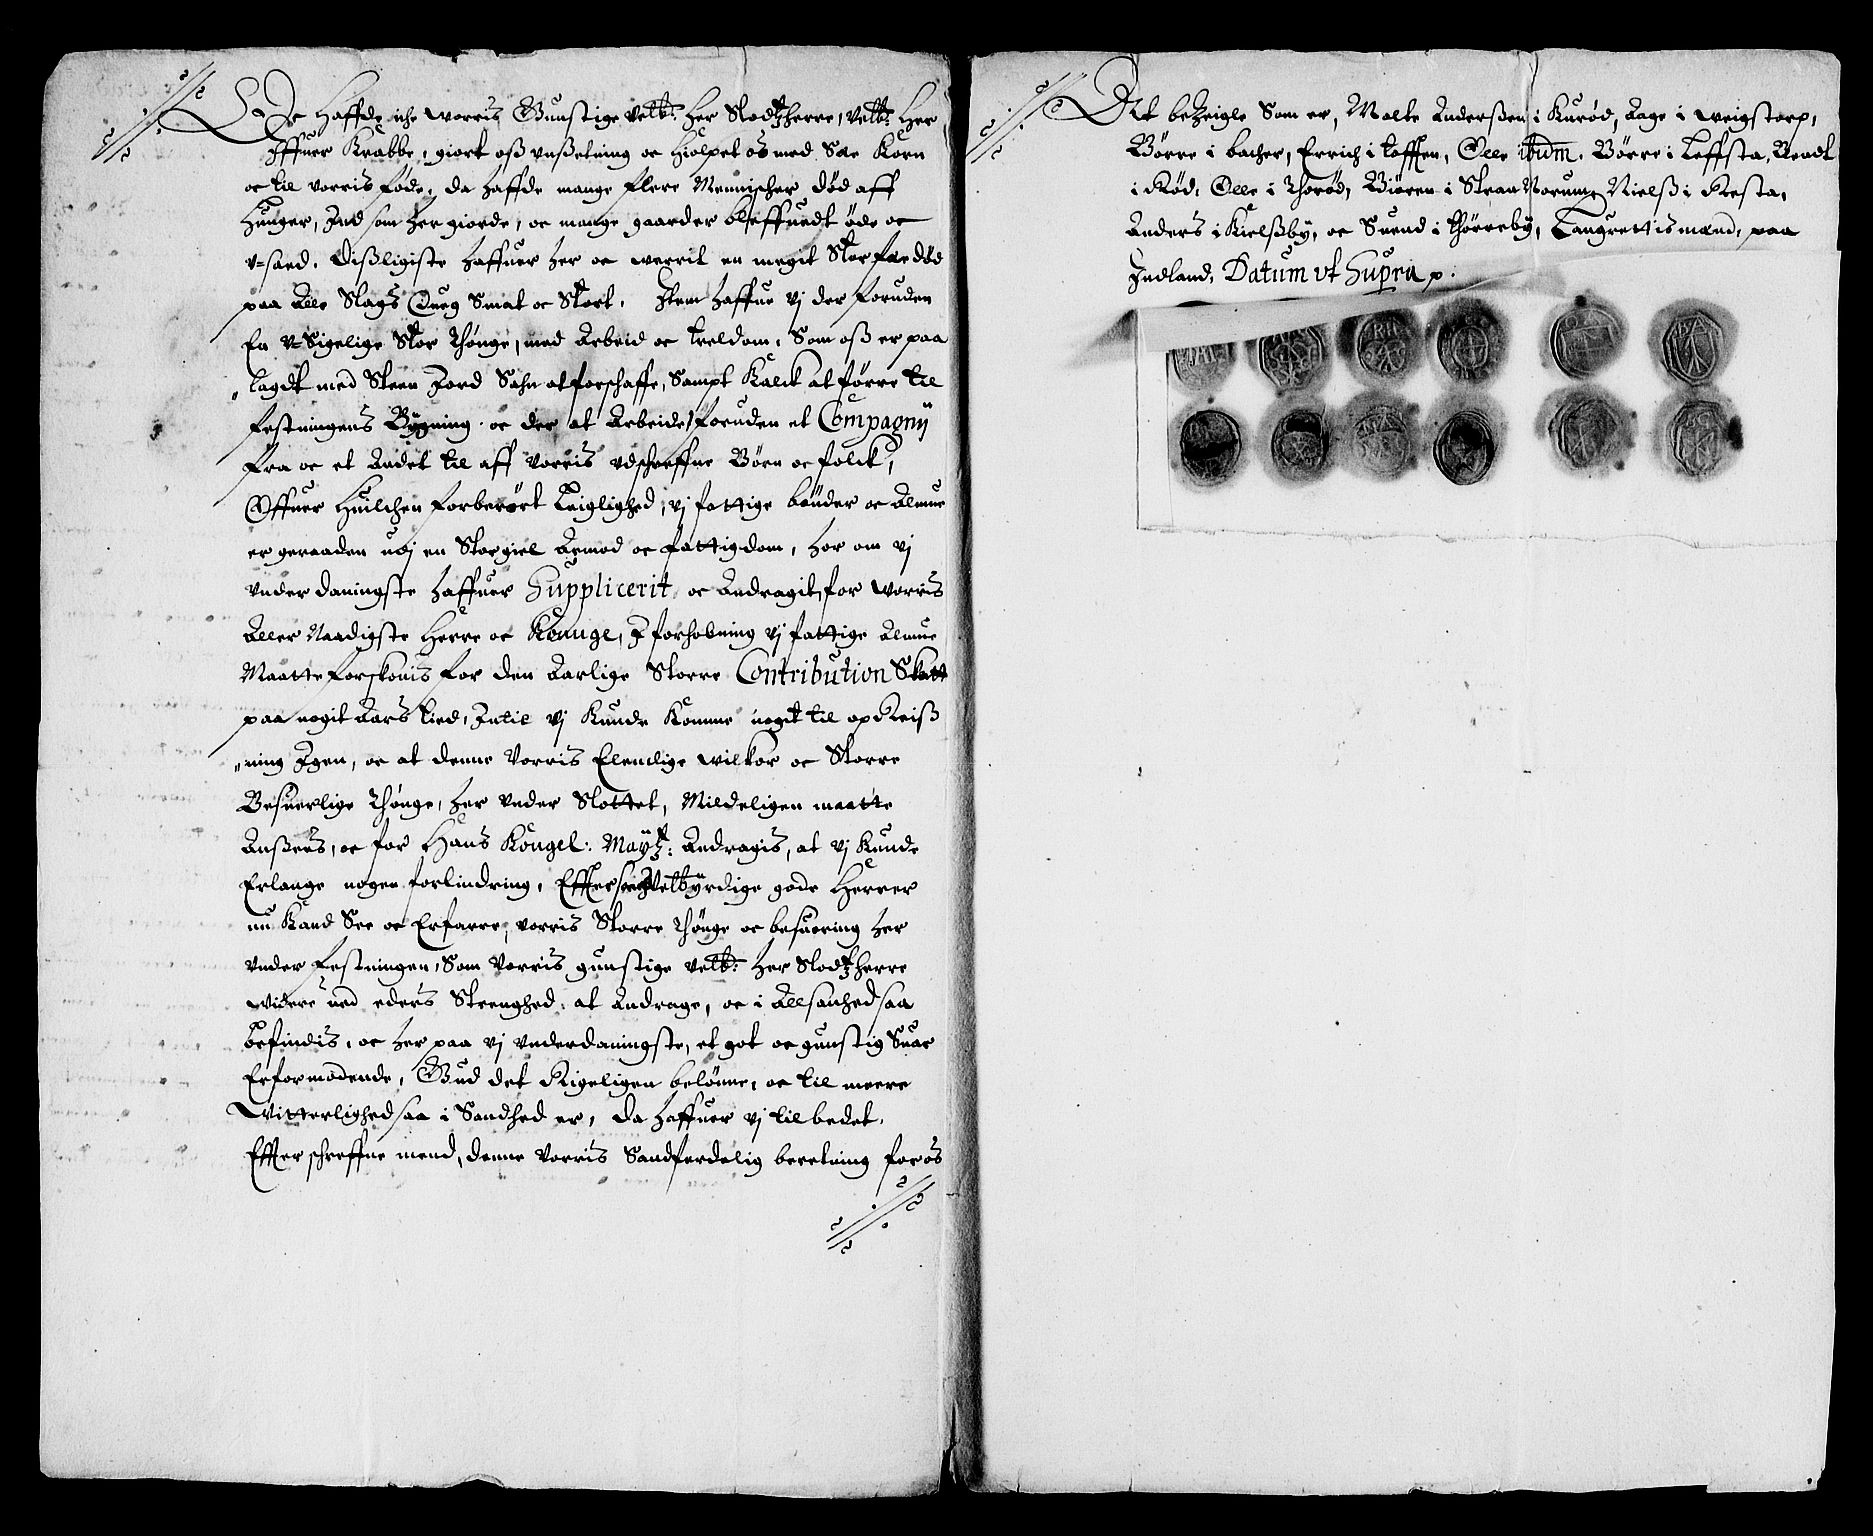 De Haffde iche worris Gunstige Velb: Her Slodtzherre, Velb: Her
Iffuer Krabbe, giort oß vnßetning oc hiolpet os med Sæe Korn
oc til vorris føde, da haffde mange flere Mennischer død aff
Hunger, Ind som her giorde, oc mange gaarder bleffuedt øde oc
v=saed. Dißligiste haffuer her oc werrit en megit Stor fæedød
paa Alle Slags Queg Smat oc Stort. Item haffue vj der foruden
En v=Sigelige Stor thønge, med Arbeid oc treldom, Som oß er paa
lagdt med Steen Jord Sahn at forschaffe, Sampt Kalck at førre til
festningens Bygning. oc der at Arbeide, foruden et Compagnij
fra oc et Andet til aff vorris vdschreffne Børn oc folck,
Offuer Huilchen forberørt Leiglighed, vj fattige bønder oc Almue
er geraaden udj en Storgiel Armod oc fattigdom, hor om vj
vnderdaningste haffuer Supplicerit oc Andragit for worris
Aller Naadigste Herre oc Konnge, I forhobning vj fattige Almue
Maatte forskonis for den Aarlige Storre Contribution Skatt
paa nogit Aars tied, Intil vj Kunde Komme noget til opReiß
ning Igen, oc at denne Vorris Elendige wilkor oc Storre
Besuerlige thønge, her vnder Slottet, Mildeligen maatte
Anßees, oc for Hans Kongel: Maytz: Andragis, at vj Kunde
Erlange nogen forlindring, Effterson Velbyrdige gode Herrer
nu Kand See oc Erfarre, vorris Storre thønge oc besuering her
vnder festningen, Som Vorris gunstige Velb: Her Slodtzherre
widere ued eders Strenghed at Andrage, oc i Allsanhed saa
befindis, oc her paa vj vnderdaningste, et got oc gunstig Suar
Erformodende, Gud det Rigeligen belønne, oc til meere
Vitterlighed saa i Sandhed er, da haffuer vj til bedet.
Effterschreffne mend, denne Vorris Sandferdelig beretning for os
At beZeigle Som er, Malte Anderßen i Kurød, Aage i weigstorp,
Børre i bacher, Errich i tofften, Olle ibidm. Børre i Leffsta, Bendt
i Rød, Olle i Thorød, Biøren i Stran Norum, Nielß i Resta,
Anders i Kielßby, oc Suend i thørreby, Laugrettismænd, paa
Indland, Datum vt Supra p: